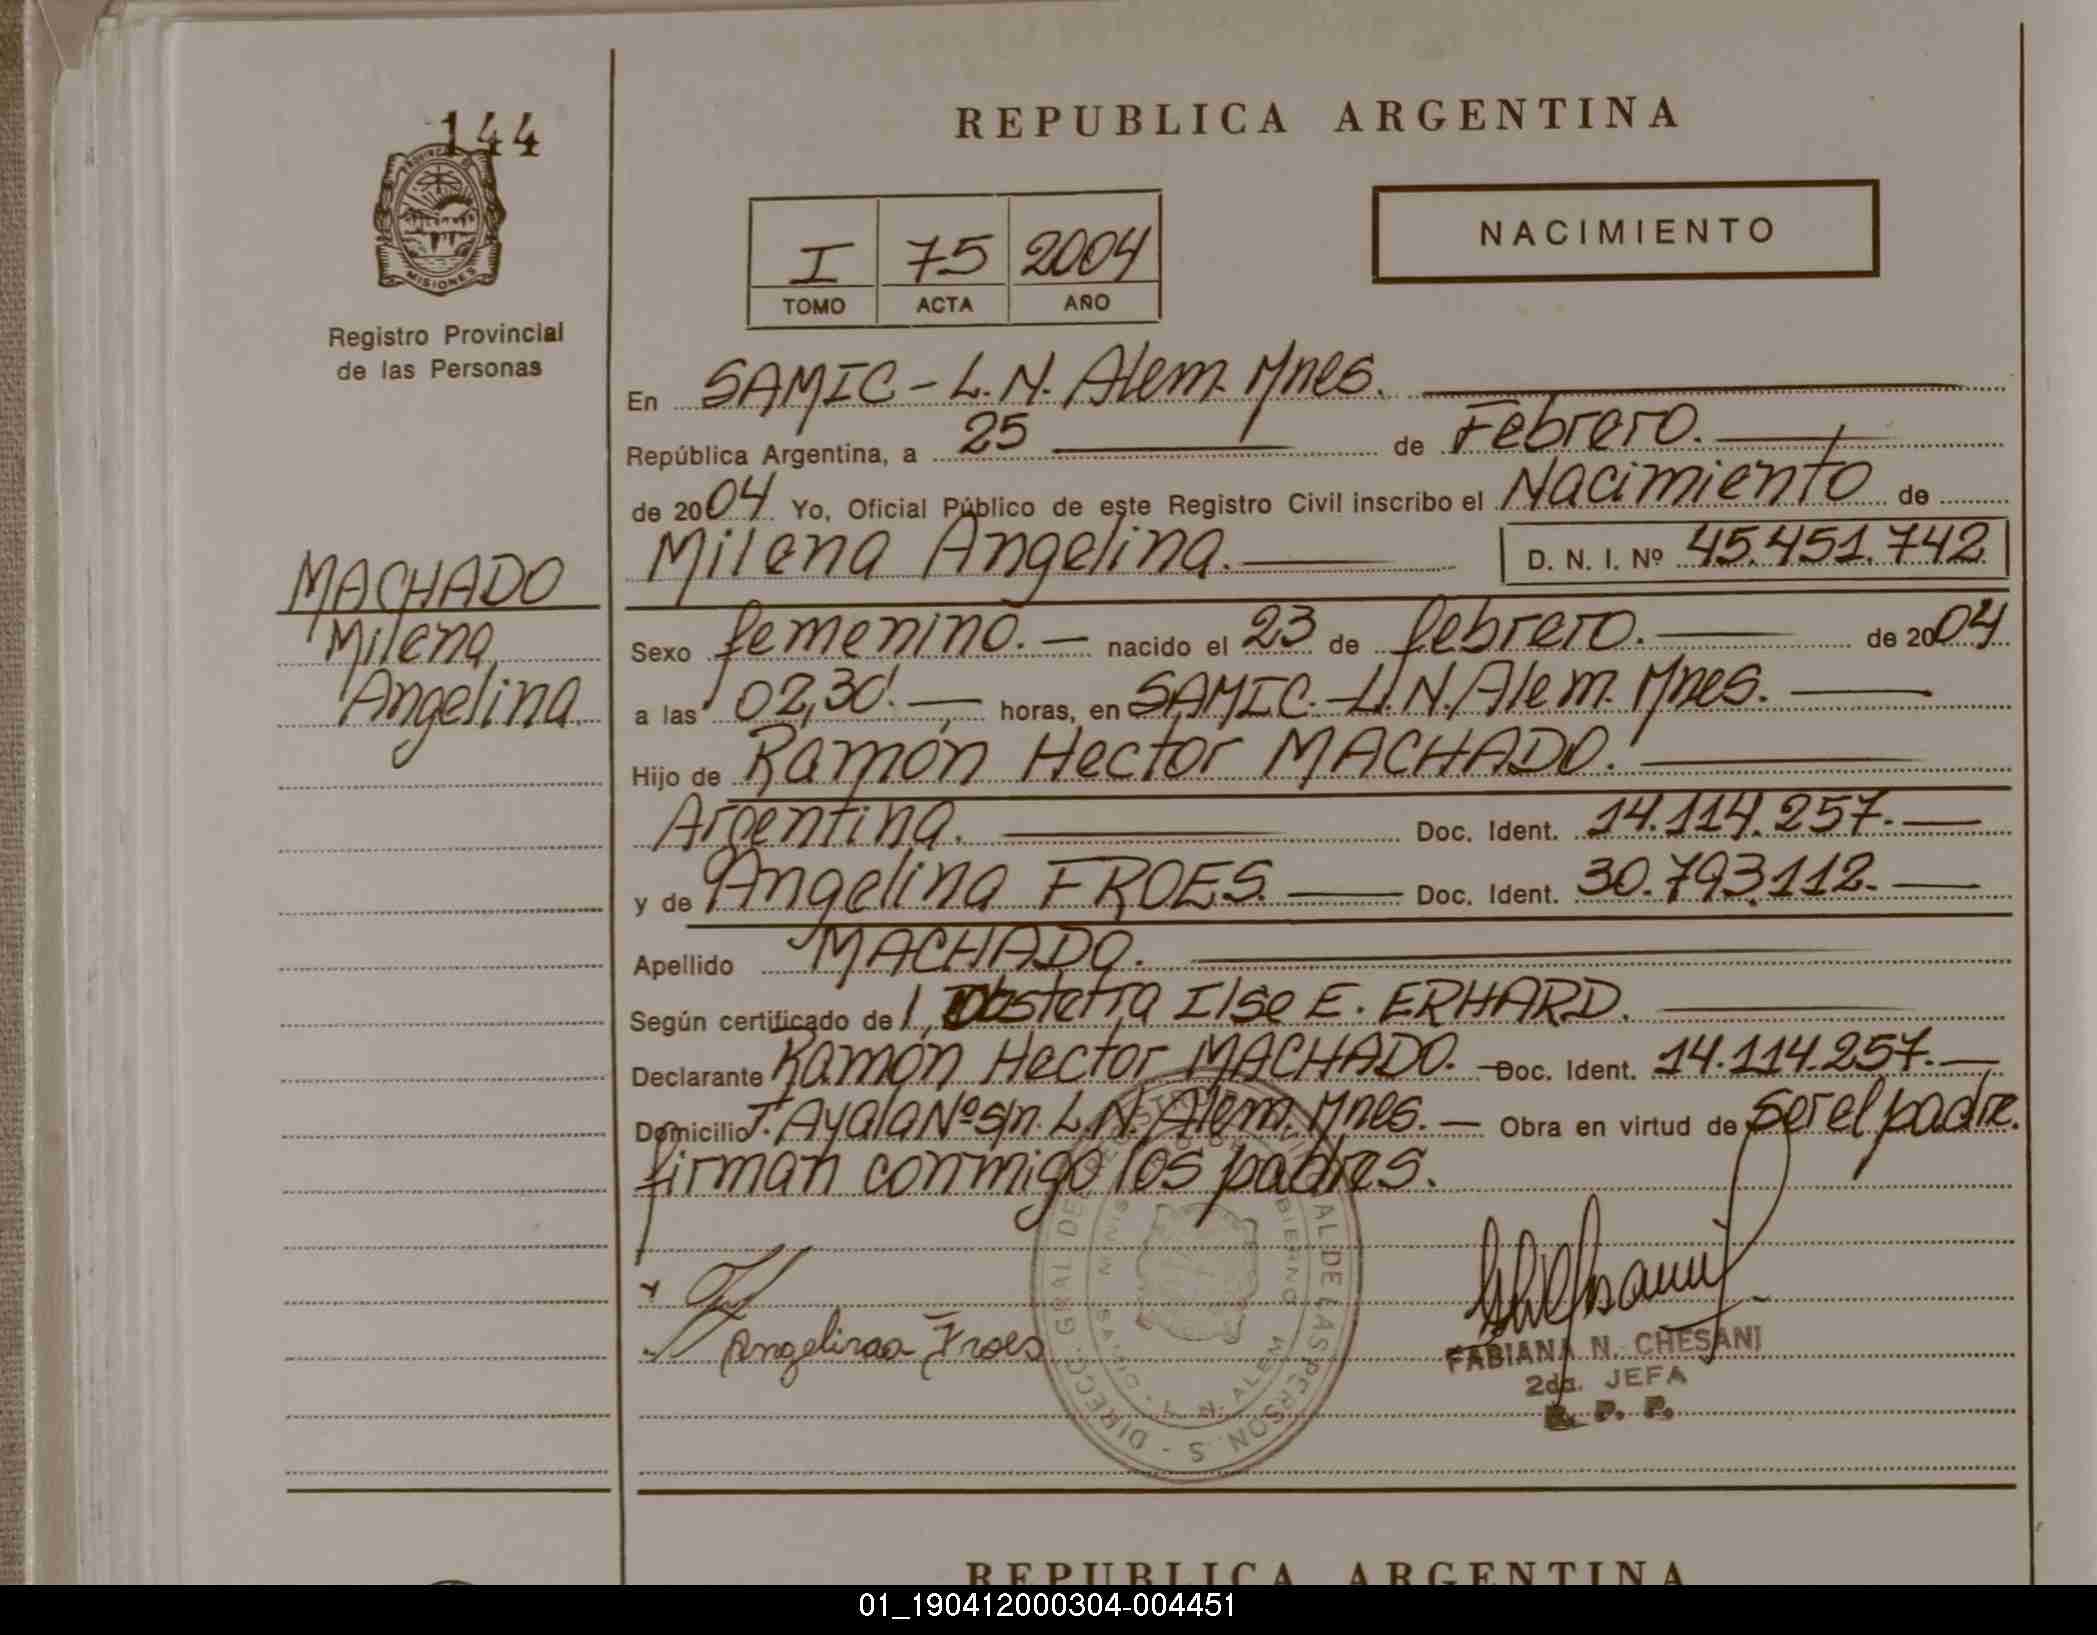 144
PROVINCIA DE
MISIONES
Registro Provincial
de las Personas
MACHADO
Milena
Angelina
REPUBLICA ARGENTINA
I 75 2004
TOMO ACTA AÑO
NACIMIENTO
En SAMIC - L. N. Alem. Mnes.
República Argentina, a 25 de Febrero.
de 2004 Yo, Oficial Público de este Registro Civil inscribo el Nacimiento de
Milena Angelina. D. N. I. Nº 45.451.742
Sexo femenino. nacido el 23 de febrero. de 2004
a las 02,30. horas, en SAMIC. L. N. Alem. Mnes.
Hijo de Ramón Hector MACHADO.
Argentina. Doc. Ident. 14.114.257.
y de Angelina FROES. Doc. Ident. 30.793.112.
Apellido MACHADO.
Según certificado de Obstetra Ilse E. ERHARD.
Declarante Ramón Hector MACHADO. Doc. Ident. 14.114.257.
Domicilio T. Ayala Nº s/n. L. N. Alem. Mnes. Obra en virtud de ser el padre.
firman conmigo los padres.
Angelina Froes
DIRECC. GRAL DE AL DE LAS PERSONAS
L. N. ALEM
FABIANA N. CHESANI
2da. JEFA
R. P. P.
REPUBLICA ARGENTINA
01_190412000304-004451